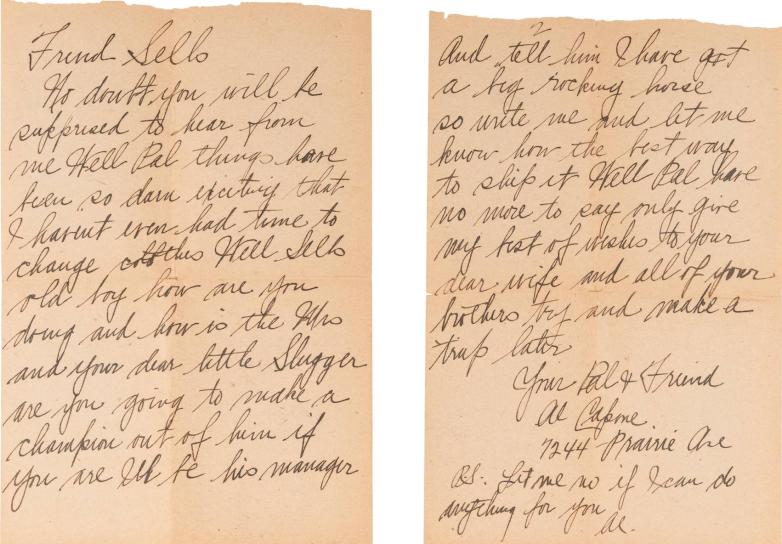 Friend Sells
No doubt you will be
supprised to hear from
me Well Pal things have
been so darn exciting that
I havent even had time to
change clothes Well Sells
old boy how are you
doing and how is the Mrs
and your dear little Slugger
are you going to make a
champion out of him if
you are Ill be his manager
2
And tell him I have got
a big rocking horse
so write me and let me
know how the best way
to ship it Well Pal have
no more to say only give
my best of wishes to your
dear wife and all of your
brothers try and make a
trip later
Your Pal & Friend
Al Capone.
7244 Prairie Ave
P.S. Let me no if I can do
anything for you
Al.